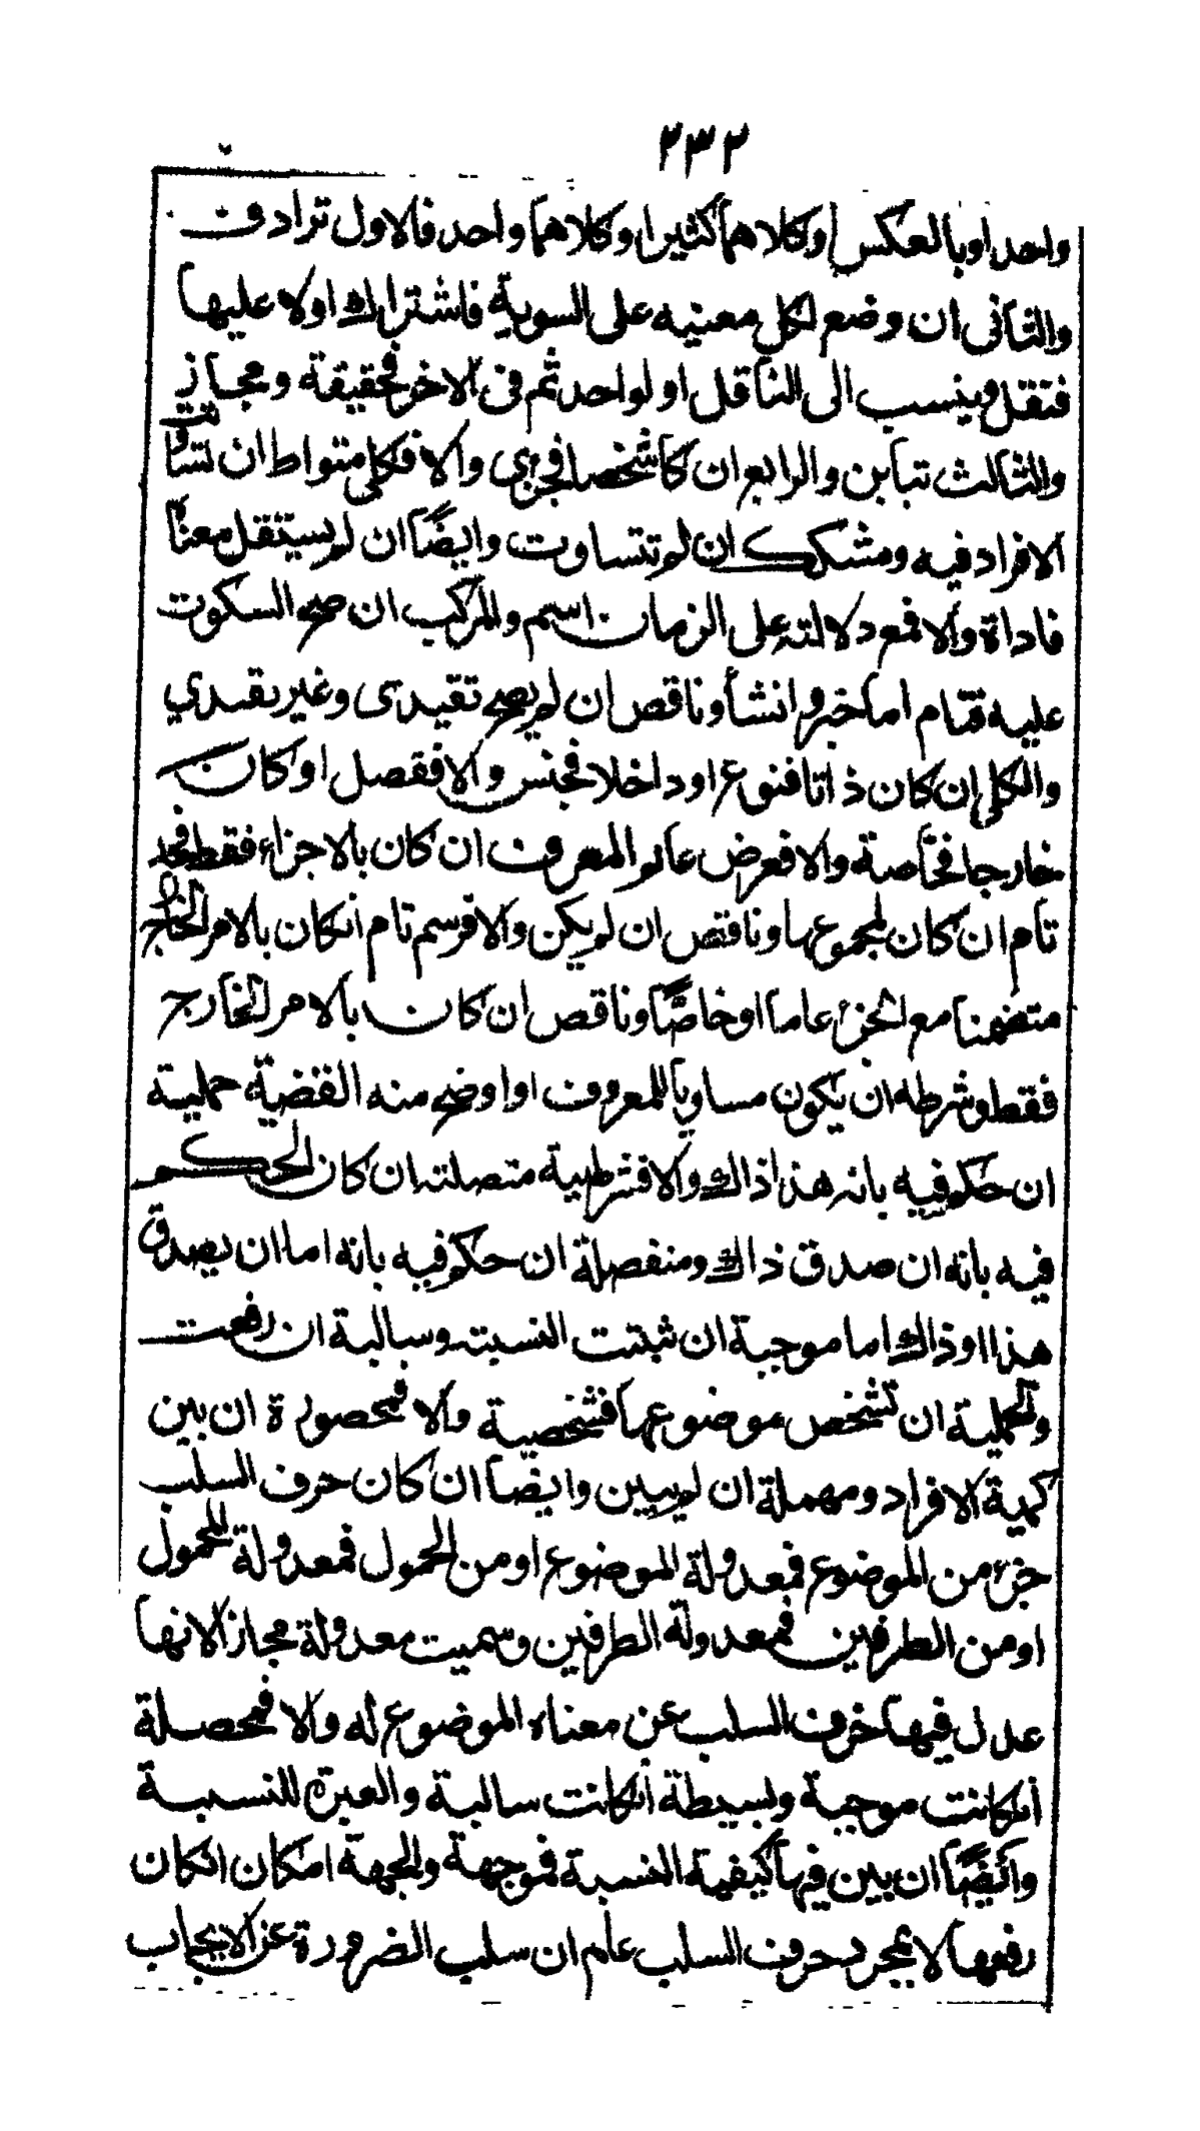 ٢٣٢
واحد او بالعكس او كلاهما كثيرا او كلاهما واحد فالاول ترادف
والثانى ان وضع لكل معنيه على السوية فاشتراك اولا عليها
فتقل وينسب الى الناقل او لواحد ثم فى الاخر فحقيقة ومجاز
والثالث تباين والرابع ان كا شخصا فجزى والا فكلى متواط ان تساوت
الافراد فيه ومشكك ان لم تتساوت وايضًا ان لم يستقل معنًا
فاداة والا فمع دلالته على الزمان اسم والمركب ان صح السكوت
عليه فتام اما خبر وانشأ وناقص ان لم يصح تقيدى وغير تقيدي
والكلى ان كان ذاتا فنوع او داخلا فجنس والا ففصل او كان
خارجا فخاصة والا فعرض عام المعرف ان كان بالاجزاء فقط فحد
تام ان كان لمجموعها وناقص ان لم يكن والا فرسم تام انكان بالامر الخارج
متضمنا مع الجزء عاما او خاصًا وناقص ان كان بالامر الخارج
فقط وشرطه ان يكون مساويا للمعروف او اوضح منه القضية حملية
ان حكم فيه بانه هذا ذاك والا فشرطية متصلته ان كان الحكم
فيه بانه ان صدق ذاك ومنفصلة ان حكم فيه بانه اما ان يصدق
هذا او ذاك اما موجبة ان ثبتت النسبته وسالبة ان رفعت
والحملية ان تشخص موضوعها فشخصية والا فمحصورة ان بين
كمية الافراد ومهملة ان لم يبين وايضا ان كان حرف السلب
جزء من الموضوع فمعدولة الموضوع او من المحمول فمعدولة المحمول
او من الطرفين فمعدولة الطرفين وسميت معدولة مجازا لانها
عدل فيها حرف السلب عن معناه الموضوع له والا فمحصلة
انكانت موجبة وبسيطة انكانت سالبة والعبرة للنسبة
وايضًا ان بين فيها كيفية النسبة فموجهة والجهة امكان انكان
رفعها لا بمجرد حرف السلب عام ان سلب الضرورة عن الايجاب